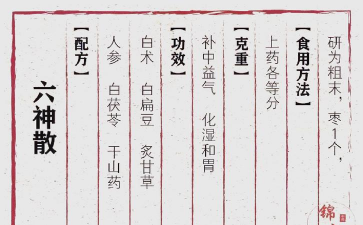 六神散
【配方】
人参 白茯苓 干山药
白术 白扁豆 炙甘草
【功效】
补中益气 化湿和胃
【克重】
上药各等分
【食用方法】
研为粗末，枣1个，
锦